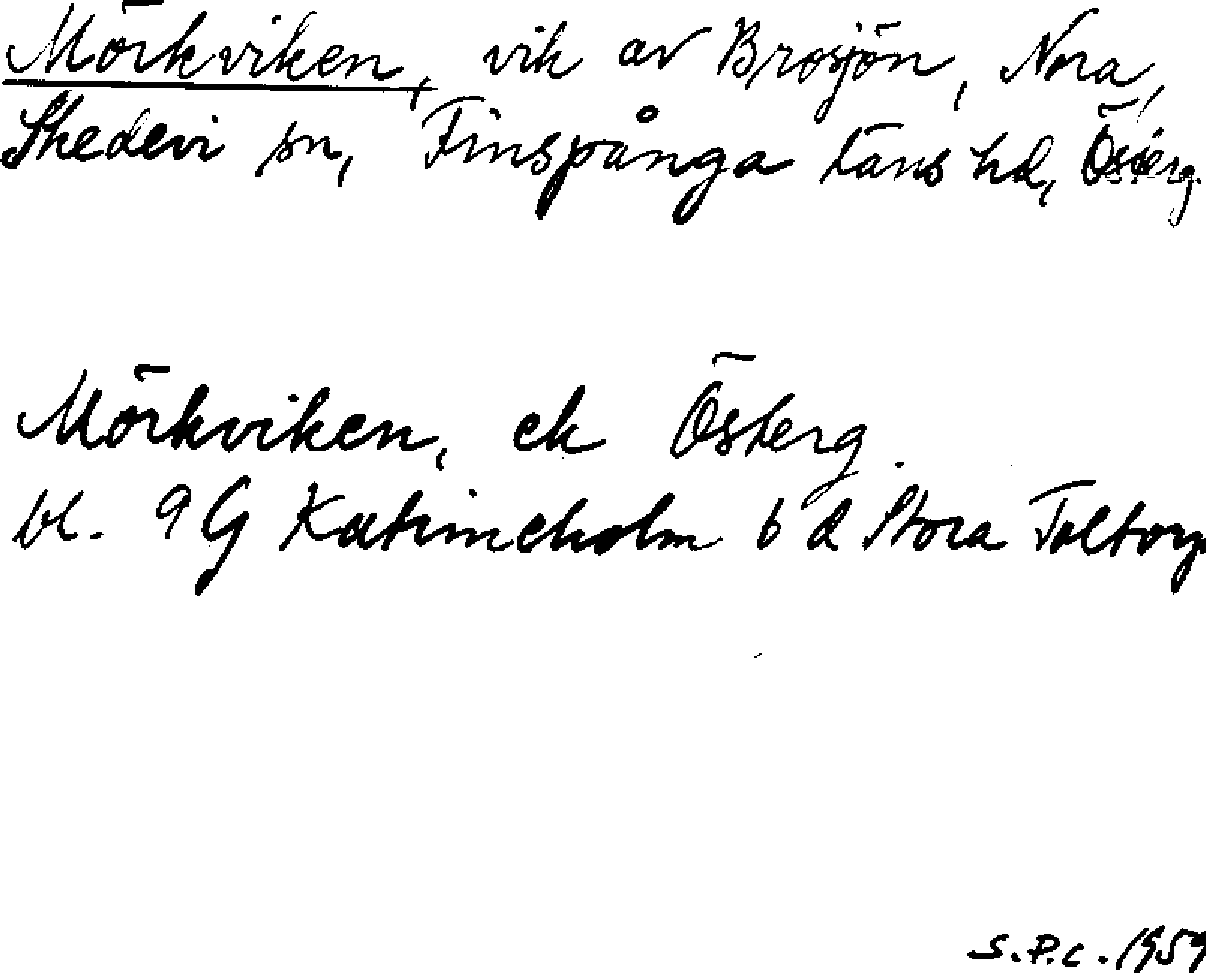 Mörkviken, vik av Brosjön, Nora,
Skedevi sn, Finspånga läns hd, Österg.
Mörkviken, ek Österg.
bl. 9 G Katrineholm 6 d Stora Toltorp
S.P.C. 1959